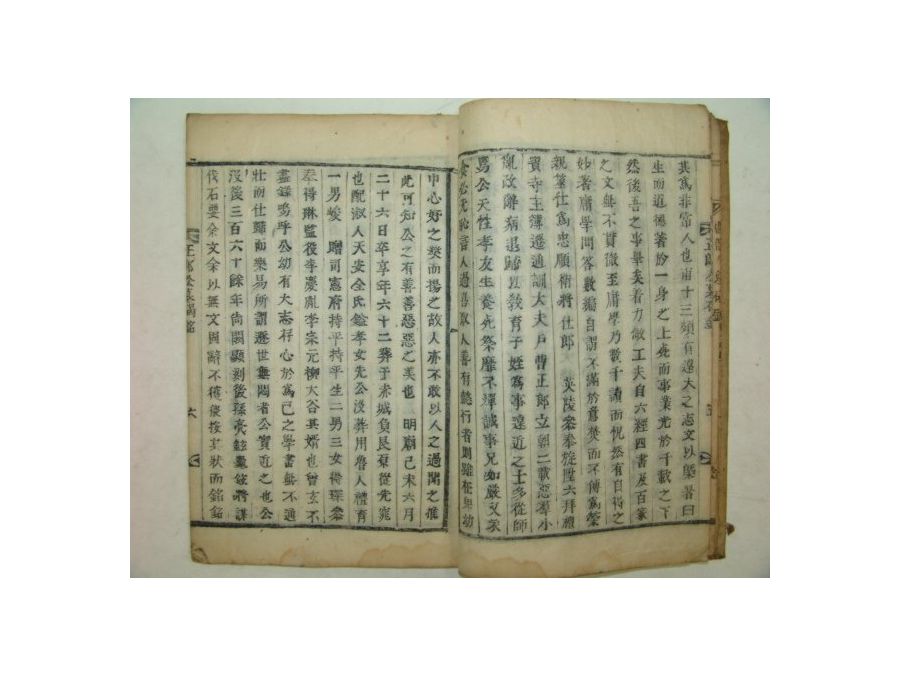 其爲非常人也甫十三頗有遠大之志文以墍者曰
生而道德著於一身之上死而事業光於千載之下
然後吾之事畢矣着力做工夫自六經四書及百家
之文無不貫徹至庸學乃數千讀而恍然有自得之
妙著庸學問答數編自謂不滿於意焚而不傳爲榮
親黨仕爲忠順衛將仕郎 英陵參奉旋陞六拜禮
賓寺主簿遷通訓大夫戶曹正郎立朝二載惡群小
亂政辭病退歸以敎育子姪爲事遠近之士多從師
焉公天性孝友生養死祭靡不殫誠事兄如嚴父家
人過 人善有 行者則雖 幼
中心好之 而揚之故人亦不敢以人之過聞之推
此可知公之有善善惡惡之美也 明廟己未六月
二十六日卒享年六十二葬于赤城負艮原從先兆
也配淑人天安全氏 孝女先公沒葬用魯人禮育
一男峻 贈司憲府持平持平生二男三女 琛參
奉得琳監役李慶胤李宗元柳大谷其婿也曾玄不
盡錄嗚呼公幼有大志存心於爲己之學書無不通
壯而仕歸而樂易所謂遯世無悶者公實近之也公
沒後三百六十餘年尙闕顯刻後孫 將謀
伐石要余文余以無文固辭不獲遂按其狀而銘銘
正郎公墓碣銘
六